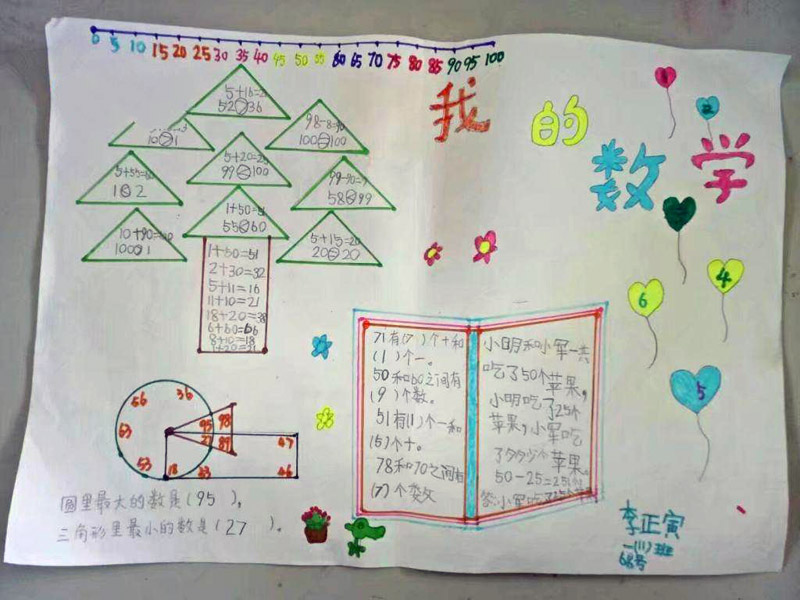 0 5 10 15 20 25 30 35 40 45 50 55 60 65 70 75 80 85 90 95 100
我的
数学
2
4
6
5
52>36
98-8=90
100=100
5+20=25
99<100
1<2
58<99
1+50=51
55<60
10+90=100
100>1
5+15=20
20=20
1+50=51
2+30=32
5+11=16
11+10=21
18+20=38
6+60=66
8+10=18
1+20=21
71有(7)个十和
(1)个一。
50和60之间有
(9)个数。
51有(1)个一和
(5)个十。
78和70之间有
(7)个数
小明和小军一共
吃了50个苹果,
小明吃了25个
苹果,小军吃
了多少个苹果。
50-25=25(个)
答:小军吃了25个苹果
36
56
63
53
18
33
95
98
27
89
47
46
圆里最大的数是(95),
三角形里最小的数是(27)。
李正寅
一(11)班
68号